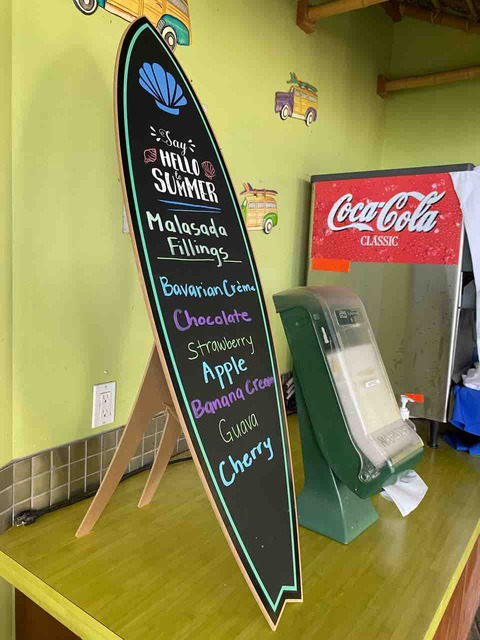 Say
HELLO
to
SUMMER
Malasada
Fillings
Bavarian Crème
Chocolate
Strawberry
Apple
Banana Cream
Guava
Cherry
Coca-Cola
CLASSIC